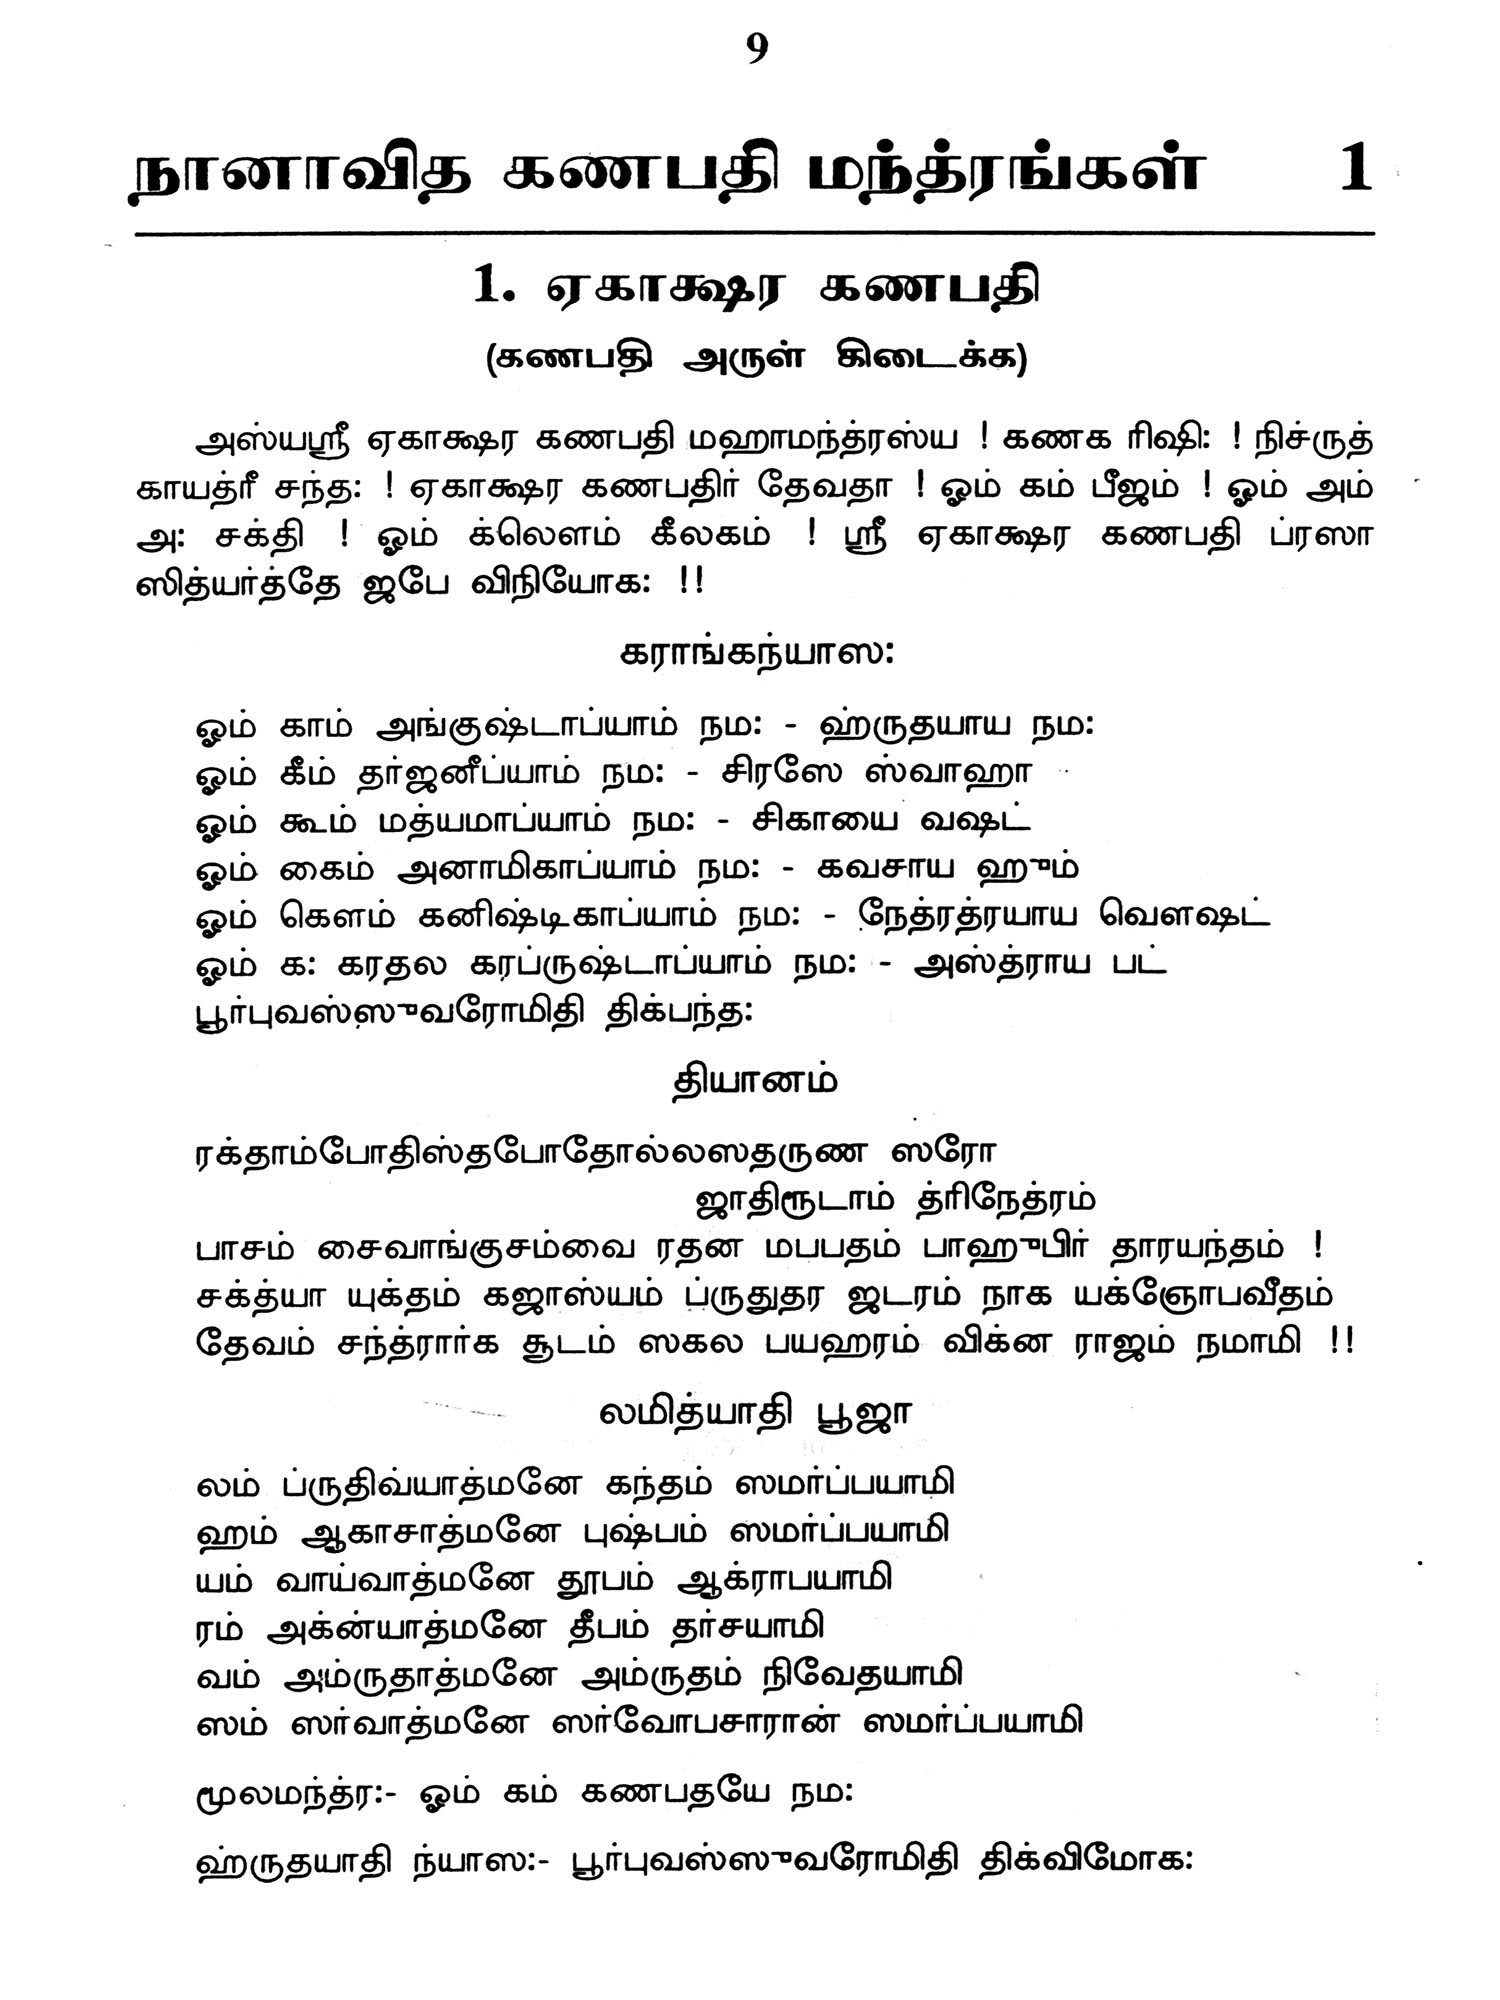 9
நானாவித கணபதி மந்த்ரங்கள் 1
1. ஏகாக்ஷர கணபதி
(கணபதி அருள் கிடைக்க)
அஸ்யஸ்ரீ ஏகாக்ஷர கணபதி மஹாமந்த்ரஸ்ய ! கணக ரிஷி: ! நிச்ருத்
காயத்ரீ சந்த: ! ஏகாக்ஷர கணபதிர் தேவதா ! ஓம் கம் பீஜம் ! ஓம் அம்
அ: சக்தி ! ஓம் க்லௌம் கீலகம் ! ஸ்ரீ ஏகாக்ஷர கணபதி ப்ரஸா
ஸித்யர்த்தே ஜபே விநியோக: !!
கராங்கந்யாஸ:
ஓம் காம் அங்குஷ்டாப்யாம் நம: - ஹ்ருதயாய நம:
ஓம் கீம் தர்ஜனீப்யாம் நம: - சிரஸே ஸ்வாஹா
ஓம் கூம் மத்யமாப்யாம் நம: - சிகாயை வஷட்
ஓம் கைம் அனாமிகாப்யாம் நம: - கவசாய ஹும்
ஓம் கௌம் கனிஷ்டிகாப்யாம் நம: - நேத்ரத்ரயாய வௌஷட்
ஓம் க: கரதல கரப்ருஷ்டாப்யாம் நம: - அஸ்த்ராய பட்
பூர்புவஸ்ஸுவரோமிதி திக்பந்த:
தியானம்
ரக்தாம்போதிஸ்தபோதோல்லஸதருண ஸரோ
ஜாதிரூடாம் த்ரிநேத்ரம்
பாசம் சைவாங்குசம்வை ரதன மபபதம் பாஹுபிர் தாரயந்தம் !
சக்த்யா யுக்தம் கஜாஸ்யம் ப்ருதுதர ஜடரம் நாக யக்ஞோபவீதம்
தேவம் சந்த்ரார்க சூடம் ஸகல பயஹரம் விக்ன ராஜம் நமாமி !!
லமித்யாதி பூஜா
லம் ப்ருதிவ்யாத்மனே கந்தம் ஸமர்ப்பயாமி
ஹம் ஆகாசாத்மனே புஷ்பம் ஸமர்ப்பயாமி
யம் வாய்வாத்மனே தூபம் ஆக்ராபயாமி
ரம் அக்ன்யாத்மனே தீபம் தர்சயாமி
வம் அம்ருதாத்மனே அம்ருதம் நிவேதயாமி
ஸம் ஸர்வாத்மனே ஸர்வோபசாரான் ஸமர்ப்பயாமி
மூலமந்த்ர:- ஓம் கம் கணபதயே நம:
ஹ்ருதயாதி ந்யாஸ:- பூர்புவஸ்ஸுவரோமிதி திக்விமோக: